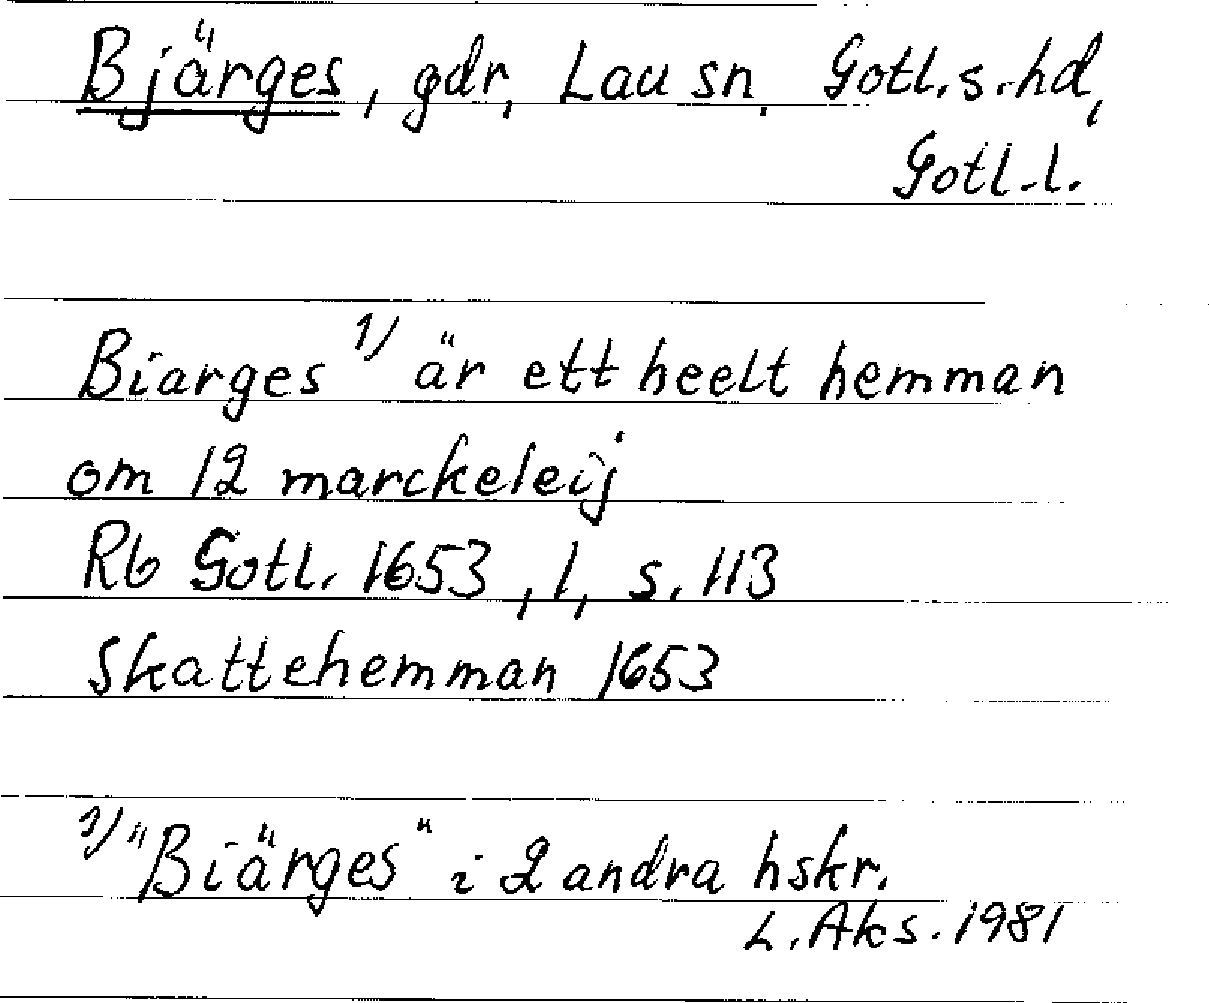 Bjärges, gdr, Lau sn, Gotl. s. hd,
Gotl. l.
Biarges 1) är ett heelt hemman
om 12 marckeleij
Rb Gotl. 1653, 1, s. 113
Skattehemman 1653
1) "Biärges" i 2 andra hskr.
L. Aks. 1981